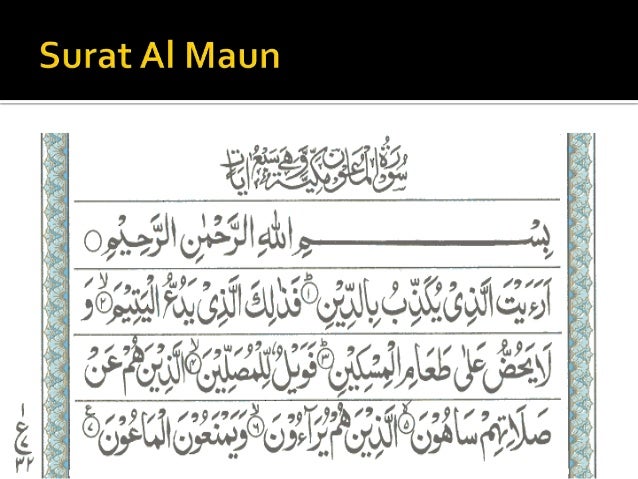 Surat Al Maun
سُوْرَةُ الْمَاعُوْنَ مَكِّيَّةٌ وَّهِيَ سَبْعُ اٰيَاتٍ
بِسْمِ اللّٰهِ الرَّحْمٰنِ الرَّحِيْمِ ○
اَرَءَيْتَ الَّذِىْ يُكَذِّبُ بِالدِّيْنِ ؕ﴿۱﴾ فَذٰلِكَ الَّذِىْ يَدُعُّ الْيَتِيْمَ ۙ﴿۲﴾ وَ
لَا يَحُضُّ عَلٰى طَعَامِ الْمِسْكِيْنِ ؕ﴿۳﴾ فَوَيْلٌ لِّلْمُصَلِّيْنَ ۙ﴿۴﴾ الَّذِيْنَ هُمْ عَنْ
صَلَاتِهِمْ سَاهُوْنَ ۙ﴿۵﴾ الَّذِيْنَ هُمْ يُرَآءُوْنَ ۙ﴿۶﴾ وَيَمْنَعُوْنَ الْمَاعُوْنَ ﴿۷﴾ ع
۱
ع
۷
۳۲